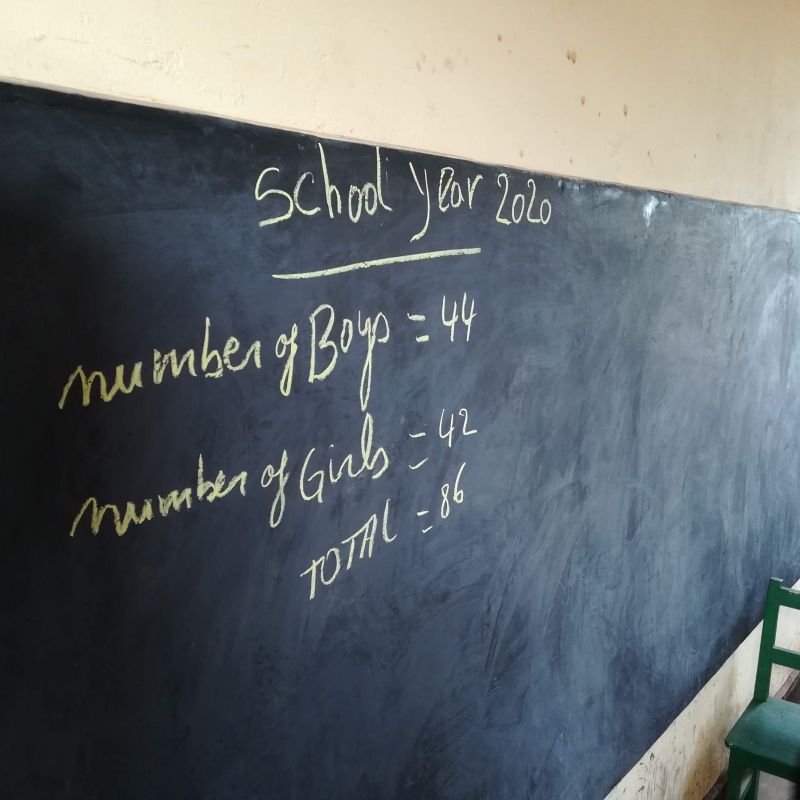 School year 2020
number of Boys = 44
number of Girls = 42
TOTAL = 86